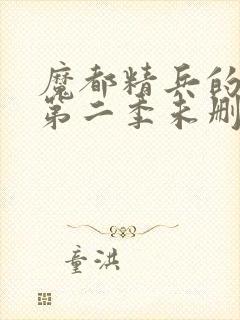 魔都精兵的
第二季未删
童洪